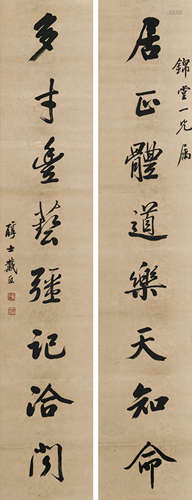 錦堂一兄属
居正體道樂天知命
多才豊藝彊記洽聞
醇士戴熙